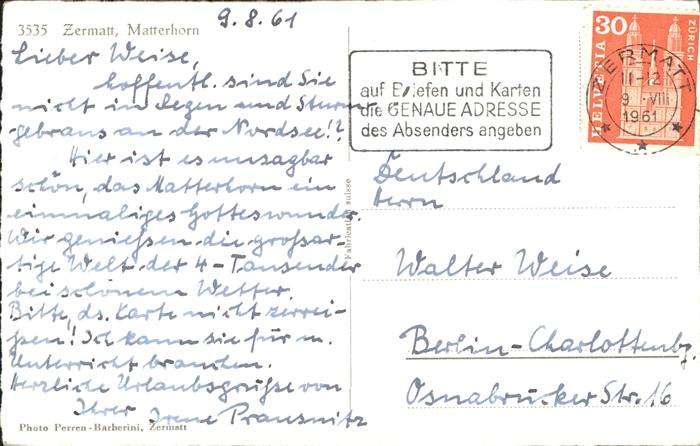 3535 Zermatt, Matterhorn
9.8.61
Lieber Weise,
hoffentl. sind Sie
nicht in Regen und Sturm-
gebraus an der Nordsee!?
Hier ist es unsagbar
schön, das Matterhorn ein
einmaliges Gotteswunder.
Wir genießen die großar-
tige Welt der 4-Tausender
bei schönem Wetter.
Bitte, ds. Karte nicht zerrei-
ßen! Ich kann sie für m.
Unterricht brauchen.
Herzliche Urlaubsgrüße von
Ihrer Irene Prausnitz
Photo Perren-Barberini, Zermatt
Fabrication suisse
BITTE
auf Briefen und Karten
die GENAUE ADRESSE
des Absenders angeben
30
HELVETIA
ZÜRICH
ZERMATT
III-12
9.-VIII
1961
Deutschland
Herrn
Walter Weise
Berlin-Charlottenbg.
Osnabrücker Str. 16